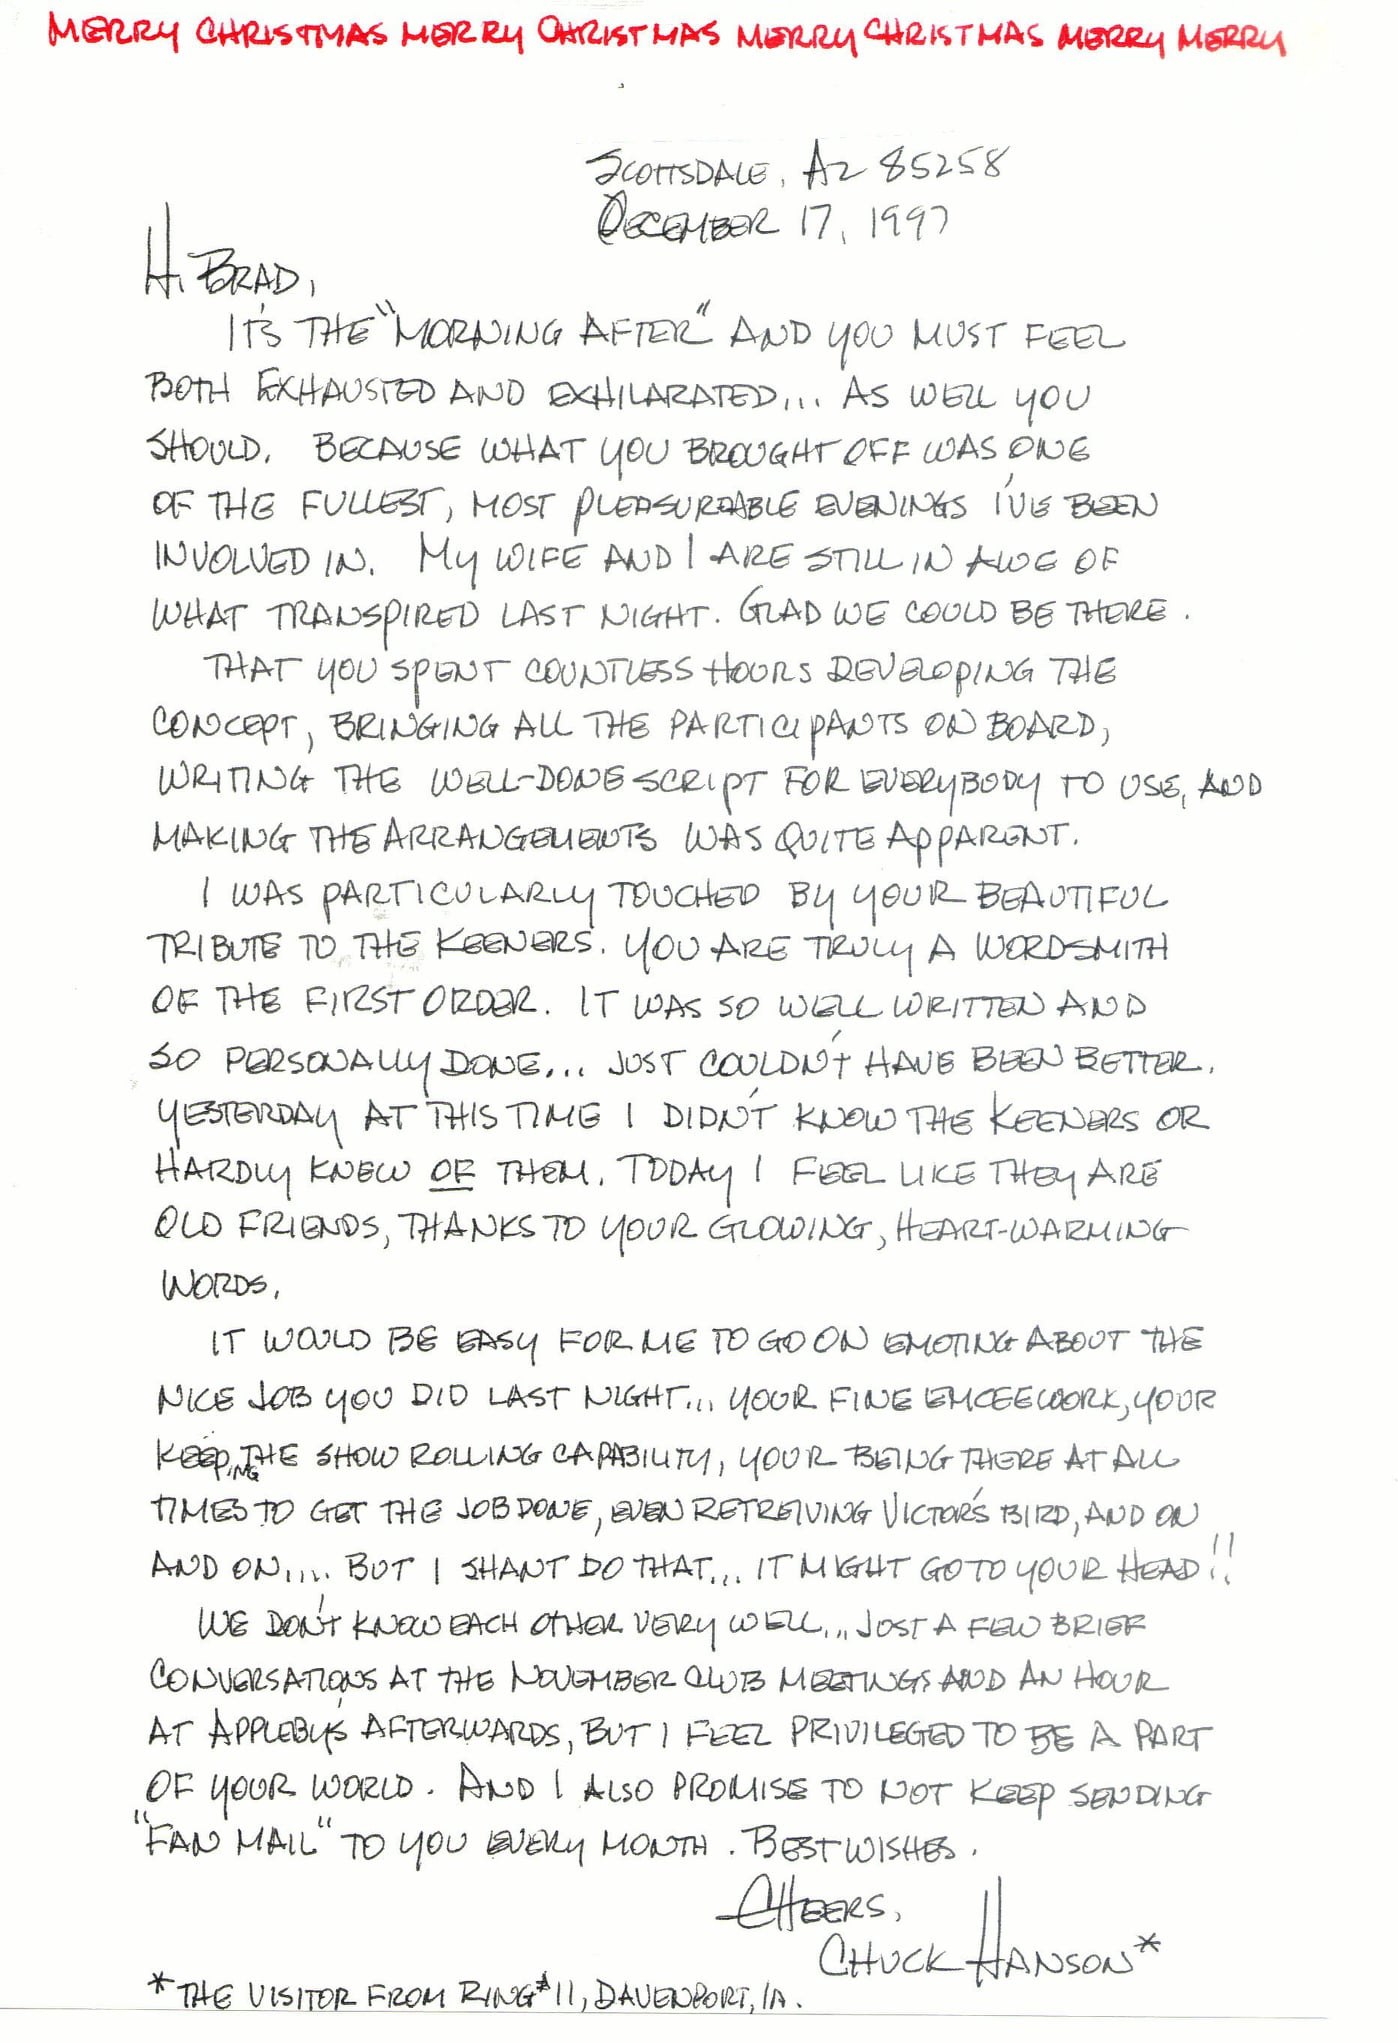 MERRY CHRISTMAS MERRY CHRISTMAS MERRY CHRISTMAS MERRY MERRY
SCOTTSDALE, AZ 85258
DECEMBER 17, 1997
HI BRAD,
IT'S THE "MORNING AFTER" AND YOU MUST FEEL
BOTH EXHAUSTED AND EXHILARATED... AS WELL YOU
SHOULD. BECAUSE WHAT YOU BROUGHT OFF WAS ONE
OF THE FULLEST, MOST PLEASURABLE EVENINGS I'VE BEEN
INVOLVED IN. MY WIFE AND I ARE STILL IN AWE OF
WHAT TRANSPIRED LAST NIGHT. GLAD WE COULD BE THERE.
THAT YOU SPENT COUNTLESS HOURS DEVELOPING THE
CONCEPT, BRINGING ALL THE PARTICIPANTS ON BOARD,
WRITING THE WELL-DONE SCRIPT FOR EVERYBODY TO USE, AND
MAKING THE ARRANGEMENTS WAS QUITE APPARENT.
I WAS PARTICULARLY TOUCHED BY YOUR BEAUTIFUL
TRIBUTE TO THE KEENERS. YOU ARE TRULY A WORDSMITH
OF THE FIRST ORDER. IT WAS SO WELL WRITTEN AND
SO PERSONALLY DONE... JUST COULDN'T HAVE BEEN BETTER.
YESTERDAY AT THIS TIME I DIDN'T KNOW THE KEENERS OR
HARDLY KNEW OF THEM. TODAY I FEEL LIKE THEY ARE
OLD FRIENDS, THANKS TO YOUR GLOWING, HEART-WARMING
WORDS.
IT WOULD BE EASY FOR ME TO GO ON EMOTING ABOUT THE
NICE JOB YOU DID LAST NIGHT... YOUR FINE EMCEE WORK, YOUR
KEEPING THE SHOW ROLLING CAPABILITY, YOUR BEING THERE AT ALL
TIMES TO GET THE JOB DONE, EVEN RETREIVING VICTOR'S BIRD, AND ON
AND ON.... BUT I SHANT DO THAT... IT MIGHT GO TO YOUR HEAD!!
WE DON'T KNOW EACH OTHER VERY WELL... JUST A FEW BRIEF
CONVERSATIONS AT THE NOVEMBER CLUB MEETINGS AND AN HOUR
AT APPLEBY'S AFTERWARDS, BUT I FEEL PRIVILEGED TO BE A PART
OF YOUR WORLD. AND I ALSO PROMISE TO NOT KEEP SENDING
"FAN MAIL" TO YOU EVERY MONTH. BEST WISHES.
CHEERS,
CHUCK HANSON*
*THE VISITOR FROM RING #11, DAVENPORT, IA.